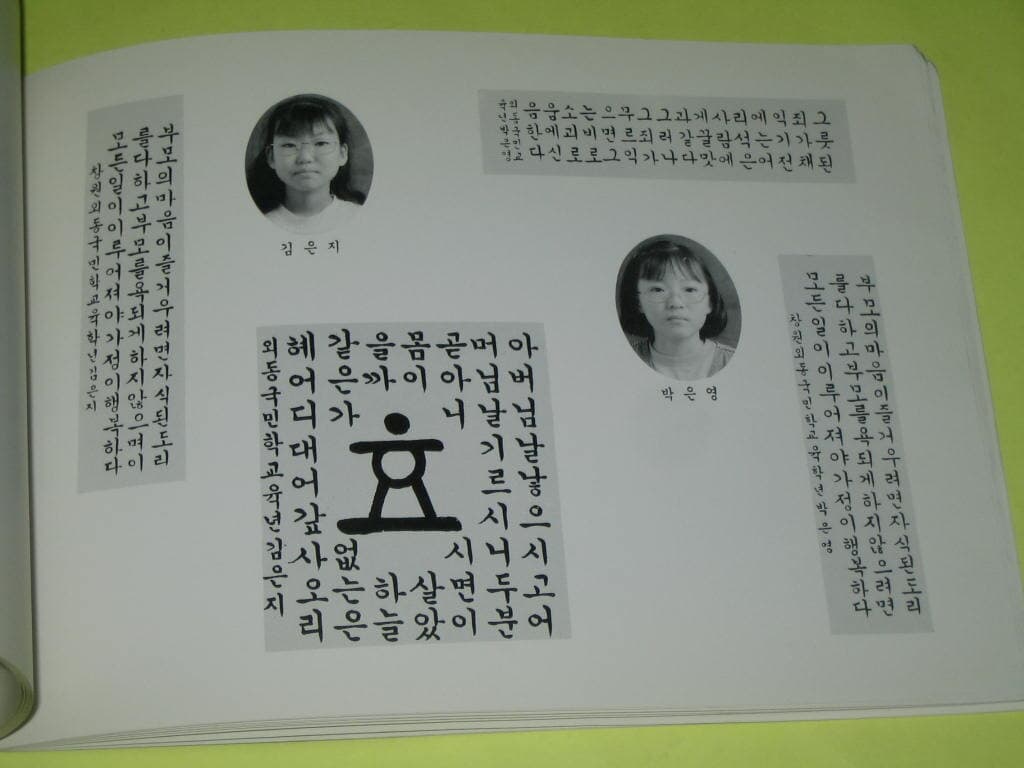 부모의마음이즐거우려면자식된도리
를다하고부모를욕되게하지않으며이
모든일이이루어져야가정이행복하다
창원외동국민학교육학년김은지
김은지
그릇된
죄가채
익기전
에는어
리석은
사림에
게꿀맛
과갈다
그러나
그죄가
무르익
으면그
는비로
소괴로
움에신
음한다
외동국민교
육년박은영
아버님날낳으시고어
머님날기르시니두분
곧아니시면이
몸이살았
을까하늘
같은가없는은
혜어디대어갚사오리
외동국민학교육년김은지
효
박은영
부모의마음이즐거우려면자식된도리
를다하고부모를욕되게하지않으려면
모든일이이루어져야가정이행복하다
창원외동국민학교육학년박은영